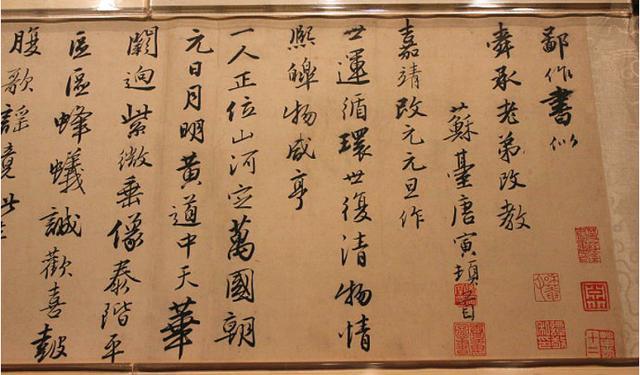 鄙作書似
舜承老弟改教
蘇臺唐寅頓首
嘉靖改元元旦作
世運循環世復清物情
熙皞物咸亨
一人正位山河定萬國朝
元日月明黃道中天華
闕迥紫微垂像泰階平
區區蜂蟻誠歡喜皷
腹歌謠竟此